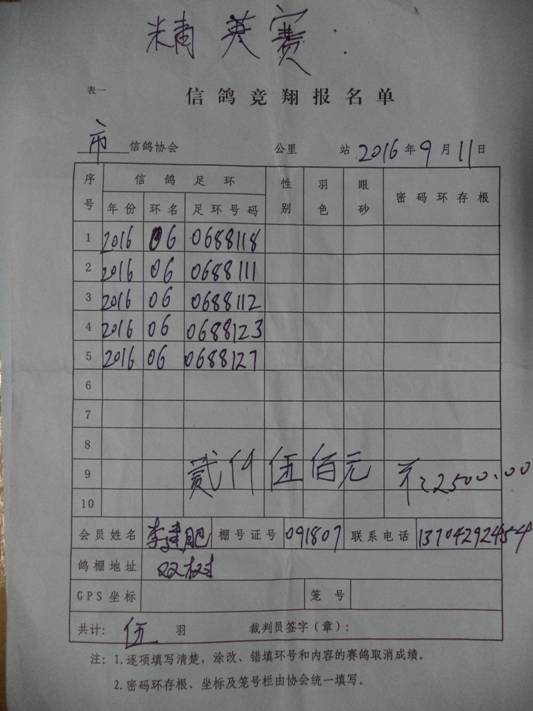 精英赛：
表一
信鸽竞翔报名单
市 信鸽协会 公里 站 2016年9月11日
序号 信鸽足环 性别 羽色 眼砂 密码环存根
年份 环名 足环号码
1 2016 06 0688118
2 2016 06 0688111
3 2016 06 0688112
4 2016 06 0688123
5 2016 06 0688127
6
7
8
9 贰仟伍佰元 ¥:2500.00
10
会员姓名 李建肥 棚号证号 091807 联系电话
鸽棚地址 双树
GPS坐标 笼号
共计：伍 羽 裁判员签字（章）：
注：1.逐项填写清楚，涂改、错填环号和内容的赛鸽取消成绩。
2.密码环存根、坐标及笼号栏由协会统一填写。